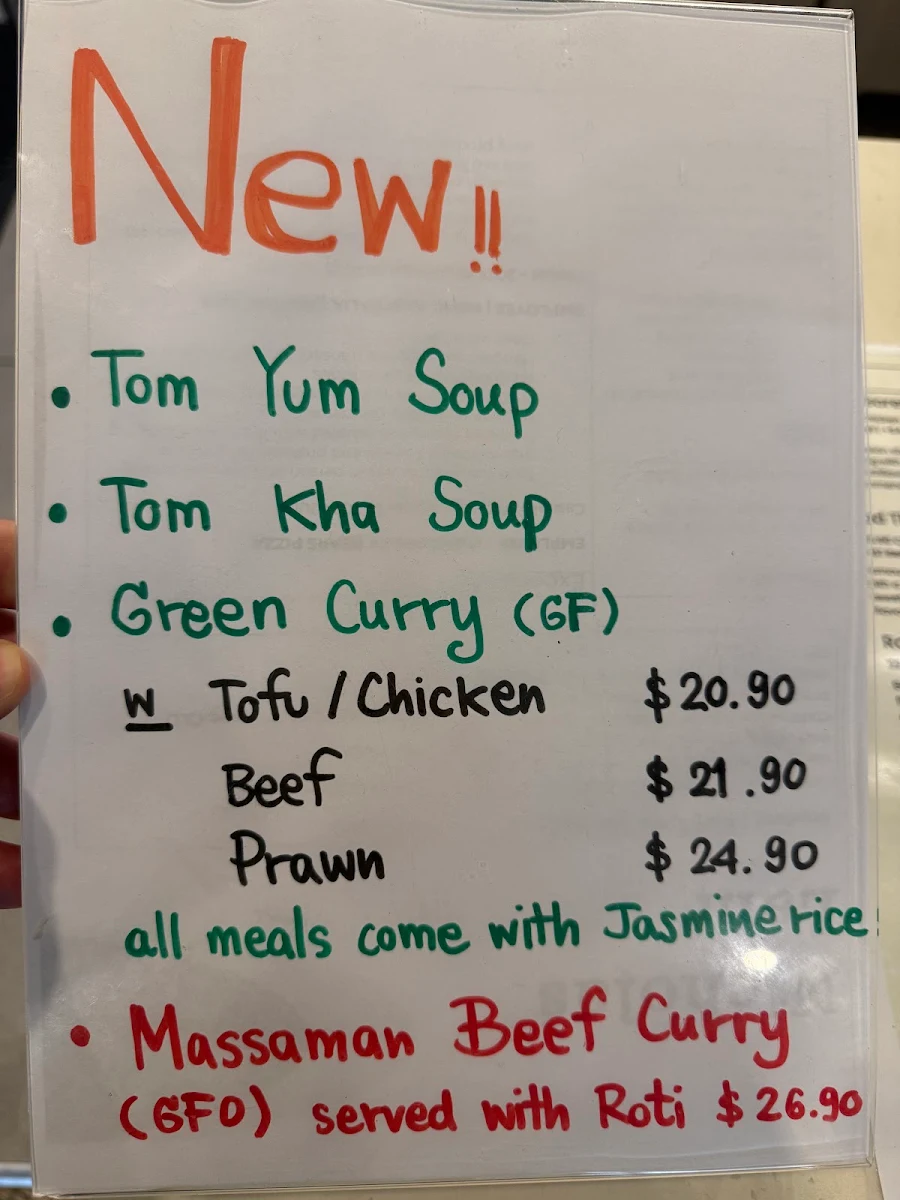 New!!
• Tom Yum Soup
• Tom Kha Soup
• Green Curry (GF)
W Tofu / Chicken $20.90
Beef $21.90
Prawn $24.90
all meals come with Jasmine rice
• Massaman Beef Curry
(GFO) served with Roti $26.90